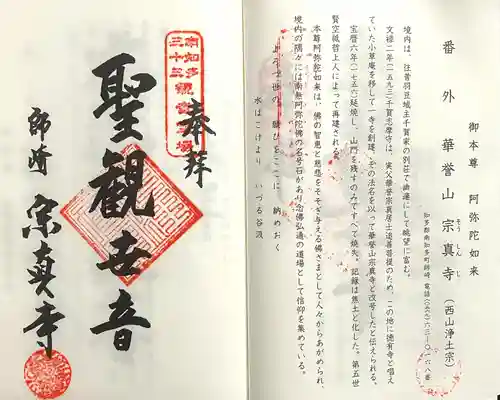 番外 華誉山 宗真寺（西山浄土宗）
そうしんじ
御本尊 阿弥陀如来
知多郡南知多町師崎 電話（五六）六三―〇一六八番
境内は、往昔羽豆城主千賀家の別荘で幽邃にして眺望に富む。
文禄二年（一五九三）千賀志摩守は、実父華誉宗真居士追善菩提のため、この地に徳有寺と唱え
ていた小草庵を移して一寺を創建、その法名を以って華誉山宗真寺と改号したと伝えられる。
宝暦六年（一七五六）延焼し、山門を残すのみですべて焼失。記録は焦土と化した。第五世
賢空祇哲上人によって再建される。
本尊阿弥陀如来は、佛の智恵と慈悲をそそぎ与える佛さまとして人々からあがめられ、
境内の隅々には南無阿弥陀佛の名号石があり念佛弘通の道場として信仰を集めている。
よろづ世の 願ひをここに 納めおく
水はこけより いづる谷汲
奉拝
南知多
三十三観音霊場
聖観世音
師崎 宗真寺